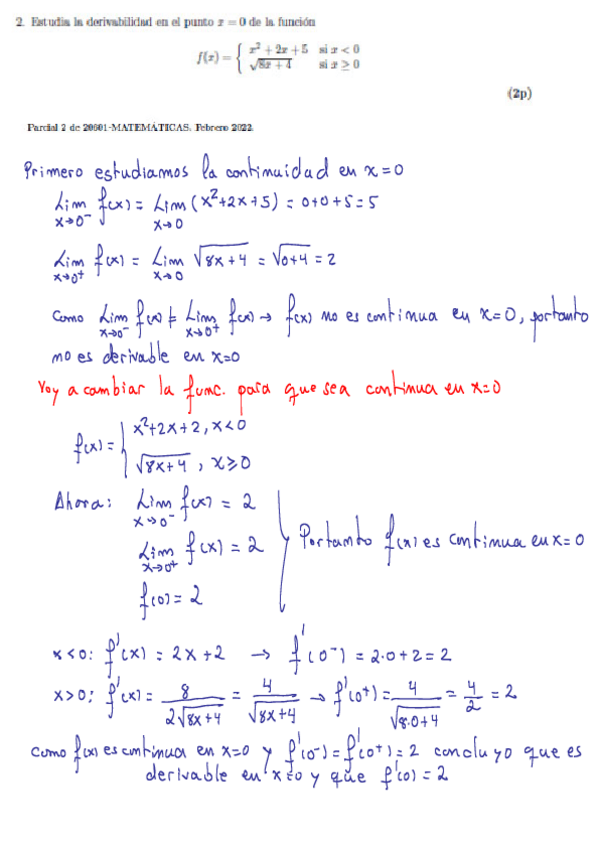 2. Estudia la derivabilidad en el punto x = 0 de la función
f(x) = { x² + 2x + 5 si x < 0
√8x + 4 si x ≥ 0
(2p)
Parcial 2 de 20601-MATEMÁTICAS. Febrero 2022.
Primero estudiamos la continuidad en x=0
Lim x→0⁻ f(x) = Lim x→0 (x²+2x+5) = 0+0+5 = 5
Lim x→0⁺ f(x) = Lim x→0 √8x+4 = √0+4 = 2
Como Lim x→0⁻ f(x) ≠ Lim x→0⁺ f(x) → f(x) no es continua en x=0, portanto
no es derivable en x=0
Voy a cambiar la func. para que sea continua en x=0
f(x) = { x²+2x+2, x<0
√8x+4, x≥0
Ahora: Lim x→0⁻ f(x) = 2
Lim x→0⁺ f(x) = 2 } Portanto f(x) es continua en x=0
f(0) = 2
x<0: f'(x) = 2x+2 → f'(0⁻) = 2·0+2 = 2
x>0; f'(x) = 8/2√8x+4 = 4/√8x+4 → f'(0⁺) = 4/√8·0+4 = 4/2 = 2
Como f(x) es continua en x=0 y f'(0⁻) = f'(0⁺) = 2 concluyo que es
derivable en x=0 y que f'(0) = 2